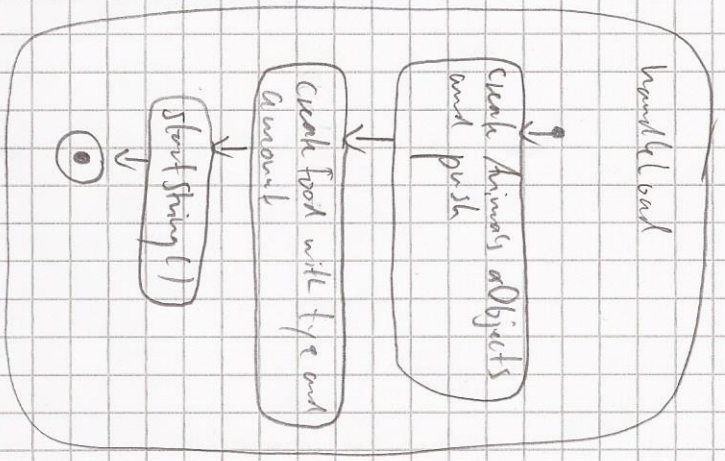 handleLoad
create Animals aObjects
and push
create Food with type and
amount
startString()